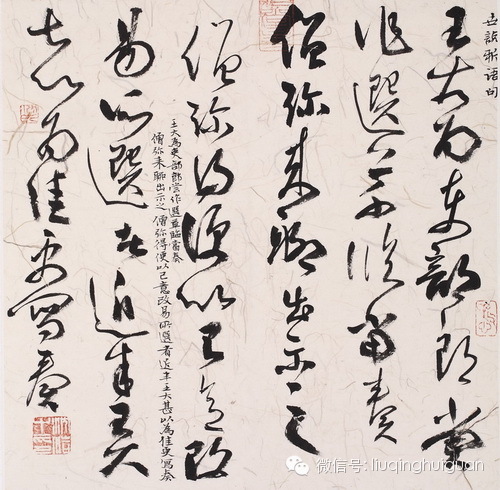 世說新語句
王大為吏部郎嘗
作選草臨當奏
僧弥来聊出示之
僧弥得便以己意改
易所選者近半王大
甚以為佳更寫奏
王大為吏部郎嘗作選草臨當奏
僧弥来聊出示之僧弥得便以己意改易所選者近半王大甚以為佳更寫奏
微信号: liuqinghuiguan